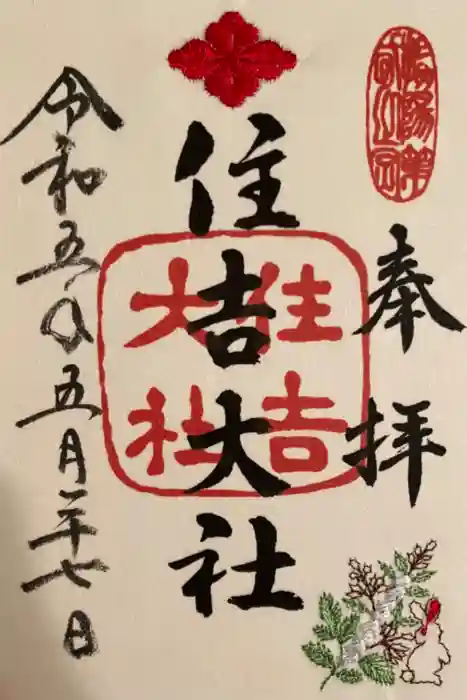 奉拝
住吉大社
住吉大社
令和五年五月二十七日